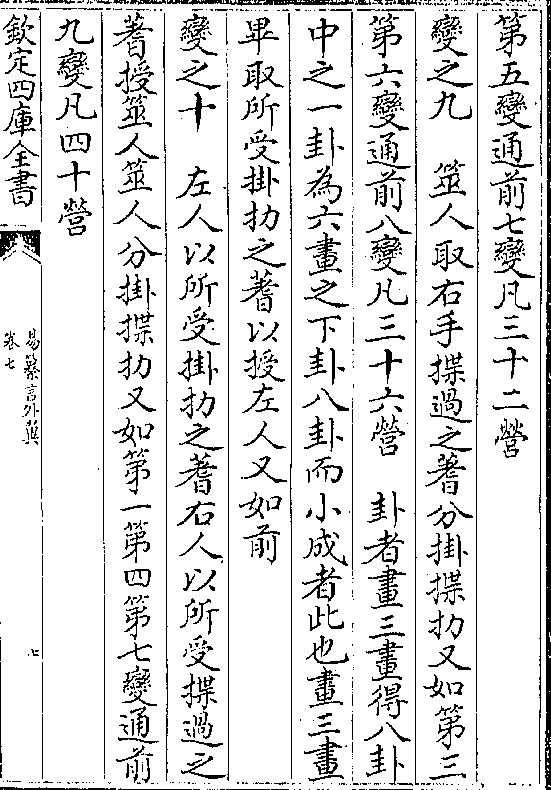 第五變通前七變凡三十二營
變之九　筮人取右手揲過之蓍分掛揲扐又如第三
第六變通前八變凡三十六營　卦者畫三畫得八卦
中之一卦為六畫之下卦八卦而小成者此也畫三畫
畢取所受掛扐之蓍以授左人又如前
變之十　左人以所受掛扐之蓍右人以所受揲過之
蓍授筮人筮人分掛揲扐又如第一第四第七變通前
九變凡四十營
欽定四庫全書
易纂言外翼
卷七
七